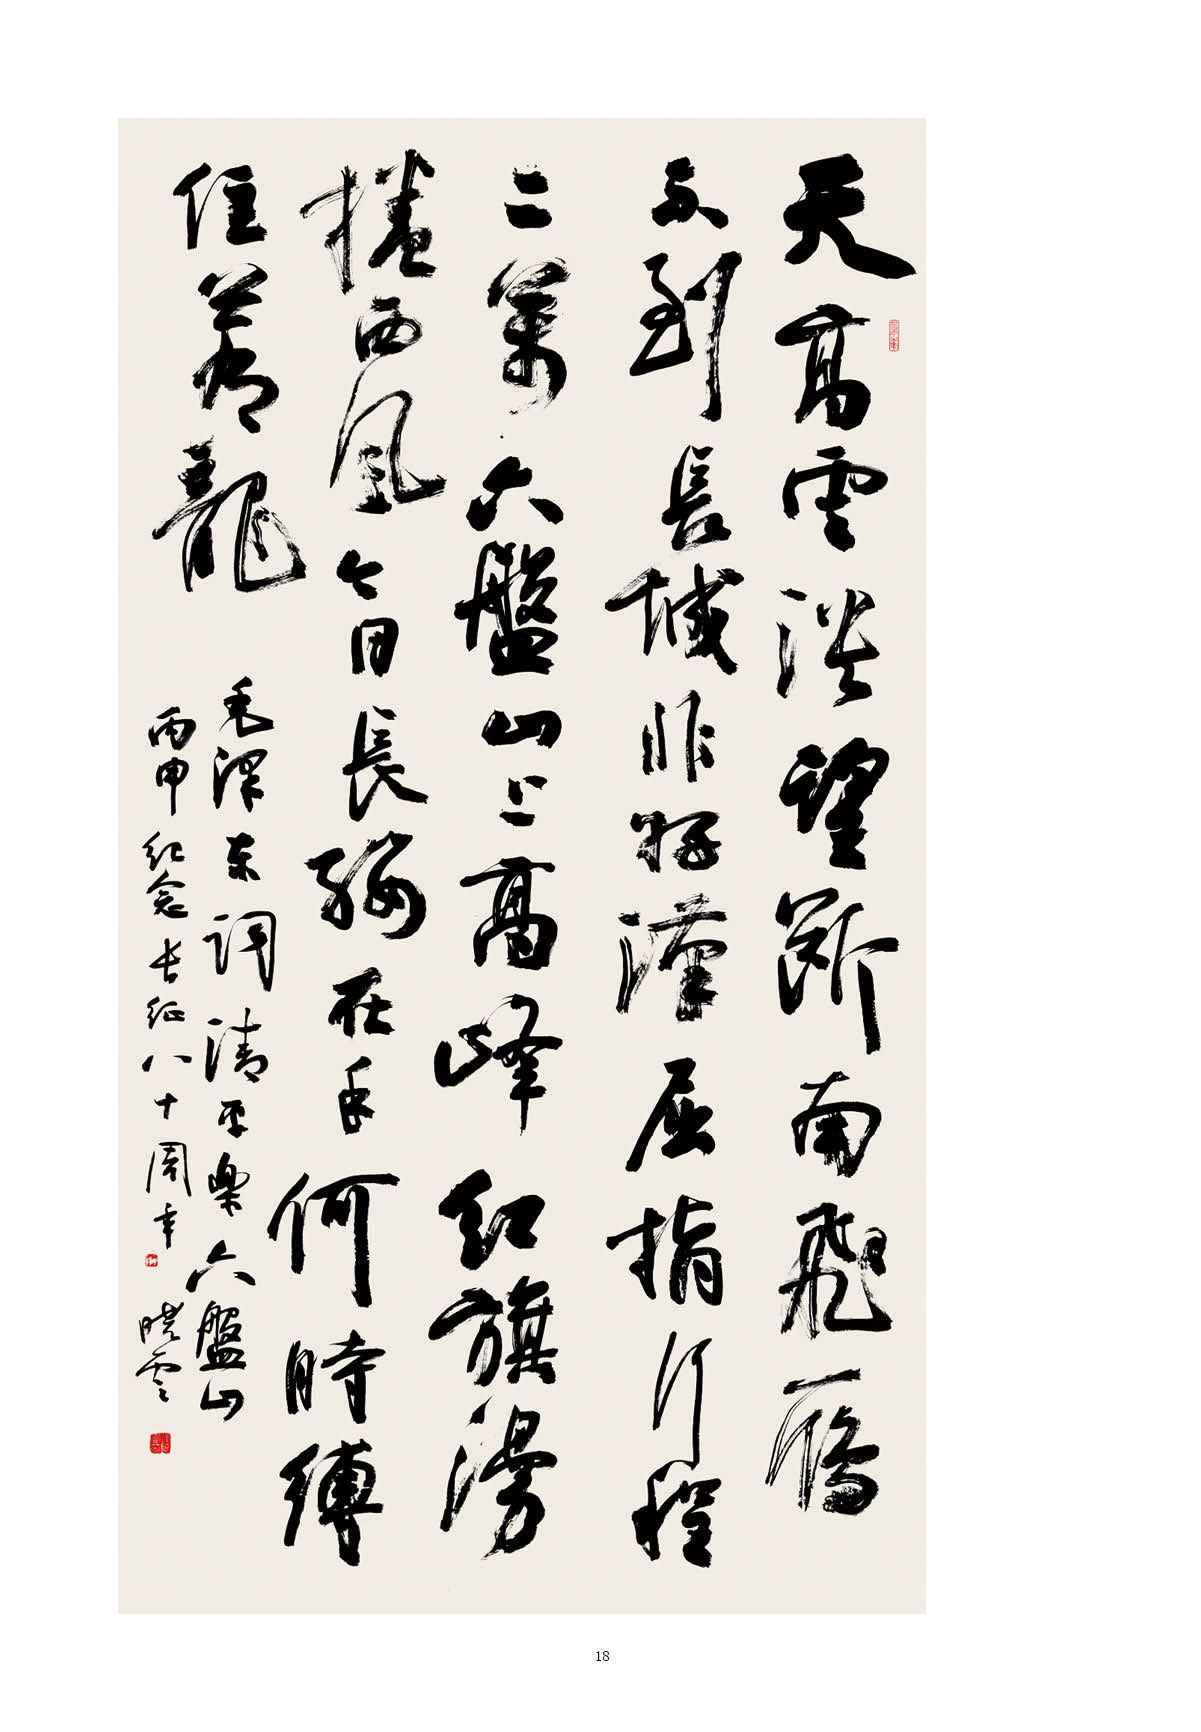 天高雲淡望断南飛雁
不到長城非好漢屈指行程
二萬六盤山上高峰红旗漫
捲西風今日長纓在手何時縛
住蒼龍
毛澤东词清平樂六盤山
丙申纪念长征八十周年 晓雲
18